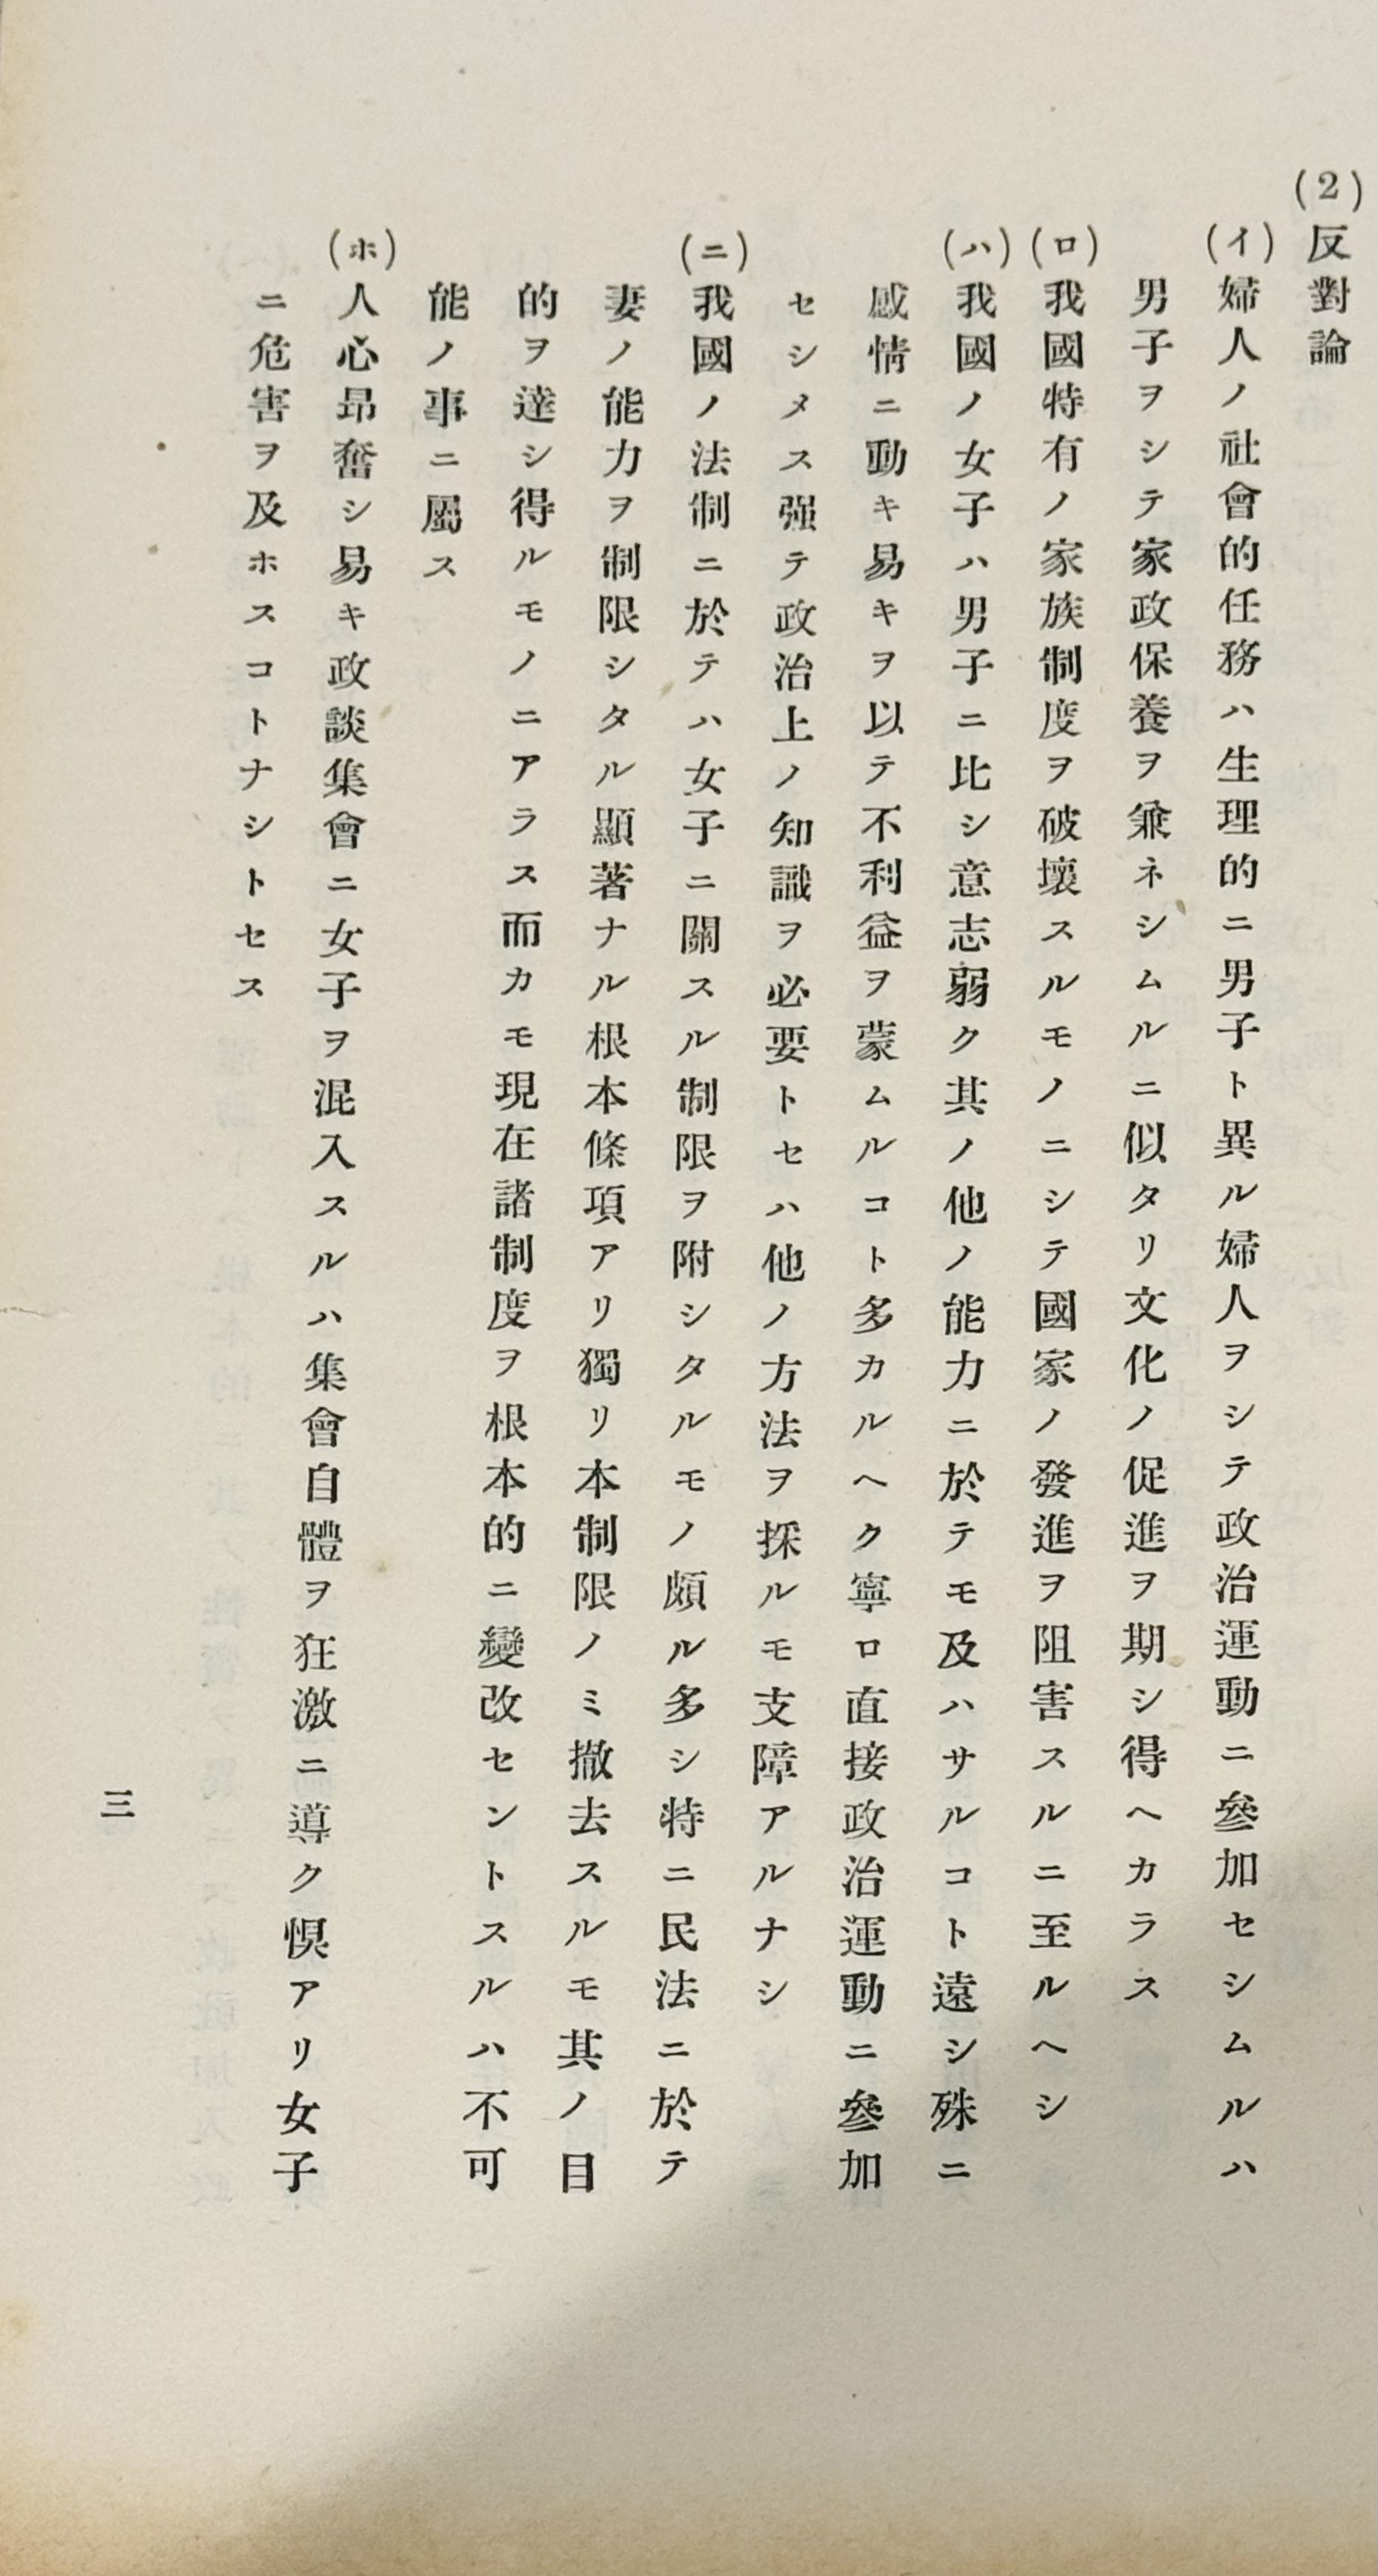 (2)反對論
(イ)婦人ノ社會的任務ハ生理的ニ男子ト異ル婦人ヲシテ政治運動ニ參加セシムルハ
男子ヲシテ家政保養ヲ兼ネシムルニ似タリ文化ノ促進ヲ期シ得ヘカラス
(ロ)我國特有ノ家族制度ヲ破壞スルモノニシテ國家ノ發進ヲ阻害スルニ至ルヘシ
(ハ)我國ノ女子ハ男子ニ比シ意志弱ク其ノ他ノ能力ニ於テモ及ハサルコト遠シ殊ニ
感情ニ動キ易キヲ以テ不利益ヲ蒙ムルコト多カルヘク寧ロ直接政治運動ニ參加
セシメス强テ政治上ノ知識ヲ必要トセハ他ノ方法ヲ採ルモ支障アルナシ
(ニ)我國ノ法制ニ於テハ女子ニ關スル制限ヲ附シタルモノ頗ル多シ特ニ民法ニ於テ
妻ノ能力ヲ制限シタル顯著ナル根本條項アリ獨リ本制限ノミ撤去スルモ其ノ目
的ヲ達シ得ルモノニアラス而カモ現在諸制度ヲ根本的ニ變改セントスルハ不可
能ノ事ニ屬ス
(ホ)人心昂奮シ易キ政談集會ニ女子ヲ混入スルハ集會自體ヲ狂激ニ導ク惧アリ女子
ニ危害ヲ及ホスコトナシトセス
三